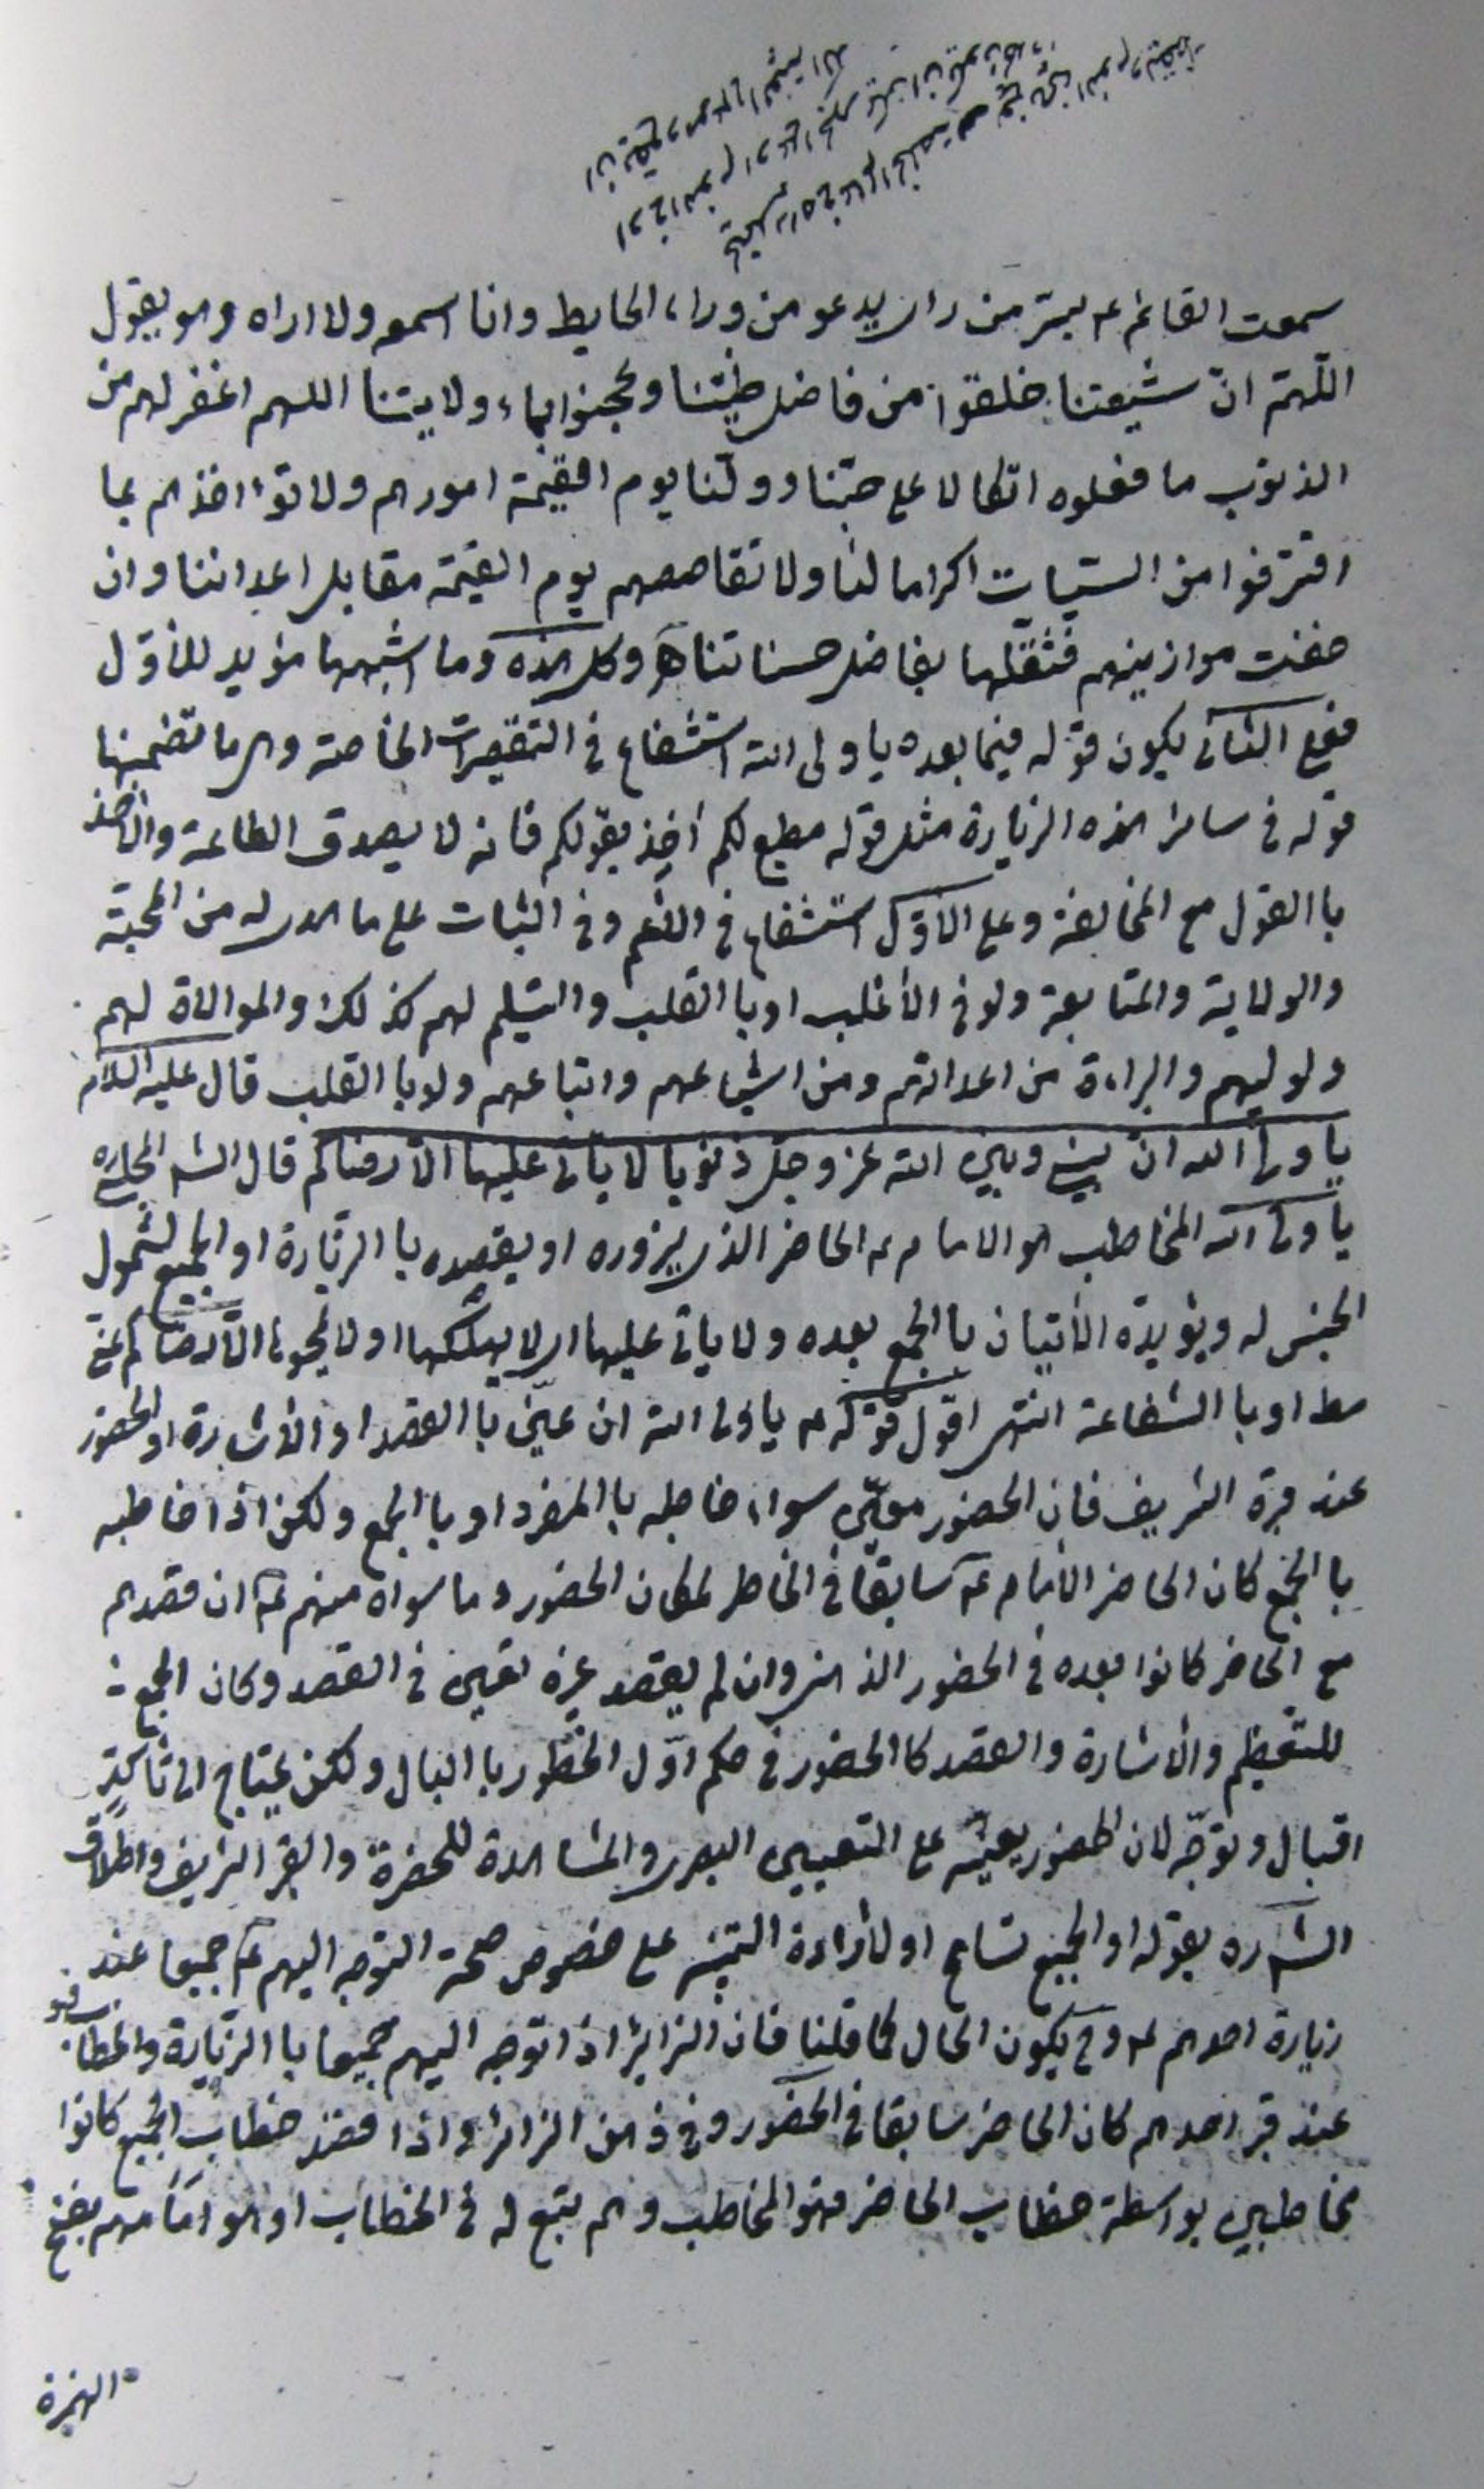 سمعت القائم عه بسرّ من رای يدعو من وراء الحايط وانا اسمعه ولا اراه وهو يقول
اللّهمّ انّ شيعتنا خلقوا من فاضل طينتنا وعجنوا بماء ولايتنا اللهم اغفر لهم من
الذنوب ما فعلوه اتّكالا على حبّنا وولّنا يوم القيمة امورهم ولا تؤاخذهم بما
اقترفوا من السّيّات اكراما لنا ولا تقاصصهم يوم القيمة مقابل اعدائنا وان
خفت موازينهم فثقّلها بفاضل حسناتنا ه وكل هذه وما اشبهها مؤيد للأوّل
فعلى الثانی يكون قوله فيما بعده يا ولی الله استشفاع فی التقصيرات الخاصة وهی ما تضمنها
قوله فی ساير هذه الزيارة مثل قوله مطيع لكم اٰخذ بقولكم فانه لا يصدق الطاعة والأخذ
باالقول مع المخالفة وعلى الأوّل استشفاع فی وفی الثبات على ما هدی له من المحبّة
والولاية والمتابعة ولو فی الأغلب او باالقلب والتسليم لهم كذلك والموالاة لهم
ولوليهم والبراءة من اعدائهم ومن اشياعهم واتباعهم ولو باالقلب قال عليه السّلام
يا ولیّ الله انّ بينی وبين الله عز وجل ذنوبا لا ياتی عليها الّا رضاكم قال الشه المجلسی ره
يا ولی الله المخاطب هو الامام عه الحاضر الذی يزوره او يقصده باالزيارة او الجميع لشمول
الجنس له ويؤيدّه الأتيان باالجمع بعده ولا ياتی عليها ای لا يهلكها او لا يمحوها الّا رضاكم عنّی
مط او باالشفاعة انتهى اقول قوله عه يا ولی الله ان عيّن باالقصد او الأشارة او الحضور
عند قبره الشريف فان الحضور معيّن سواء خاطبه باالمفرد او باالجمع ولكن اذا خاطبه
باالجمع كان الحاضر الأمام عه سابقا فی الخاطر لمكان الحضور وما سواه منهم عه ان قصدهم
مع الحاضر كانوا بعده فی الحضور الذهنی وان لم يقصد غيره تعين فی القصد وكان الجمع
للتعظيم والأشارة والقصد كاالحضور فی حكم اوّل الخطور باالبال ولكن يحتاج الى تأكيد
اقبال وتوجّه لان الحضور يعينه على التعيين البصری والمشاهدة للحضرة والقبر الشريف واطلاق
الشه ره بقوله او الجميع تسامح او لأرادة التنبيه على خصوص صحة التوجه اليهم عه جميعا عند
زيارة احدهم عه وح يكون الحال كما قلنا فان الزائر اذا توجه اليهم جميعا باالزيارة والخطاب فهو
عند قبر احدهم كان الحاضر سابقا فی الحضور وفی ذهن الزائر واذا قصد خطاب الجميع كانوا
مخاطبين بواسطة خطاب الحاضر فهو المخاطب وهم تبع له فی الخطاب او هو امامهم بفتح
الهمزة